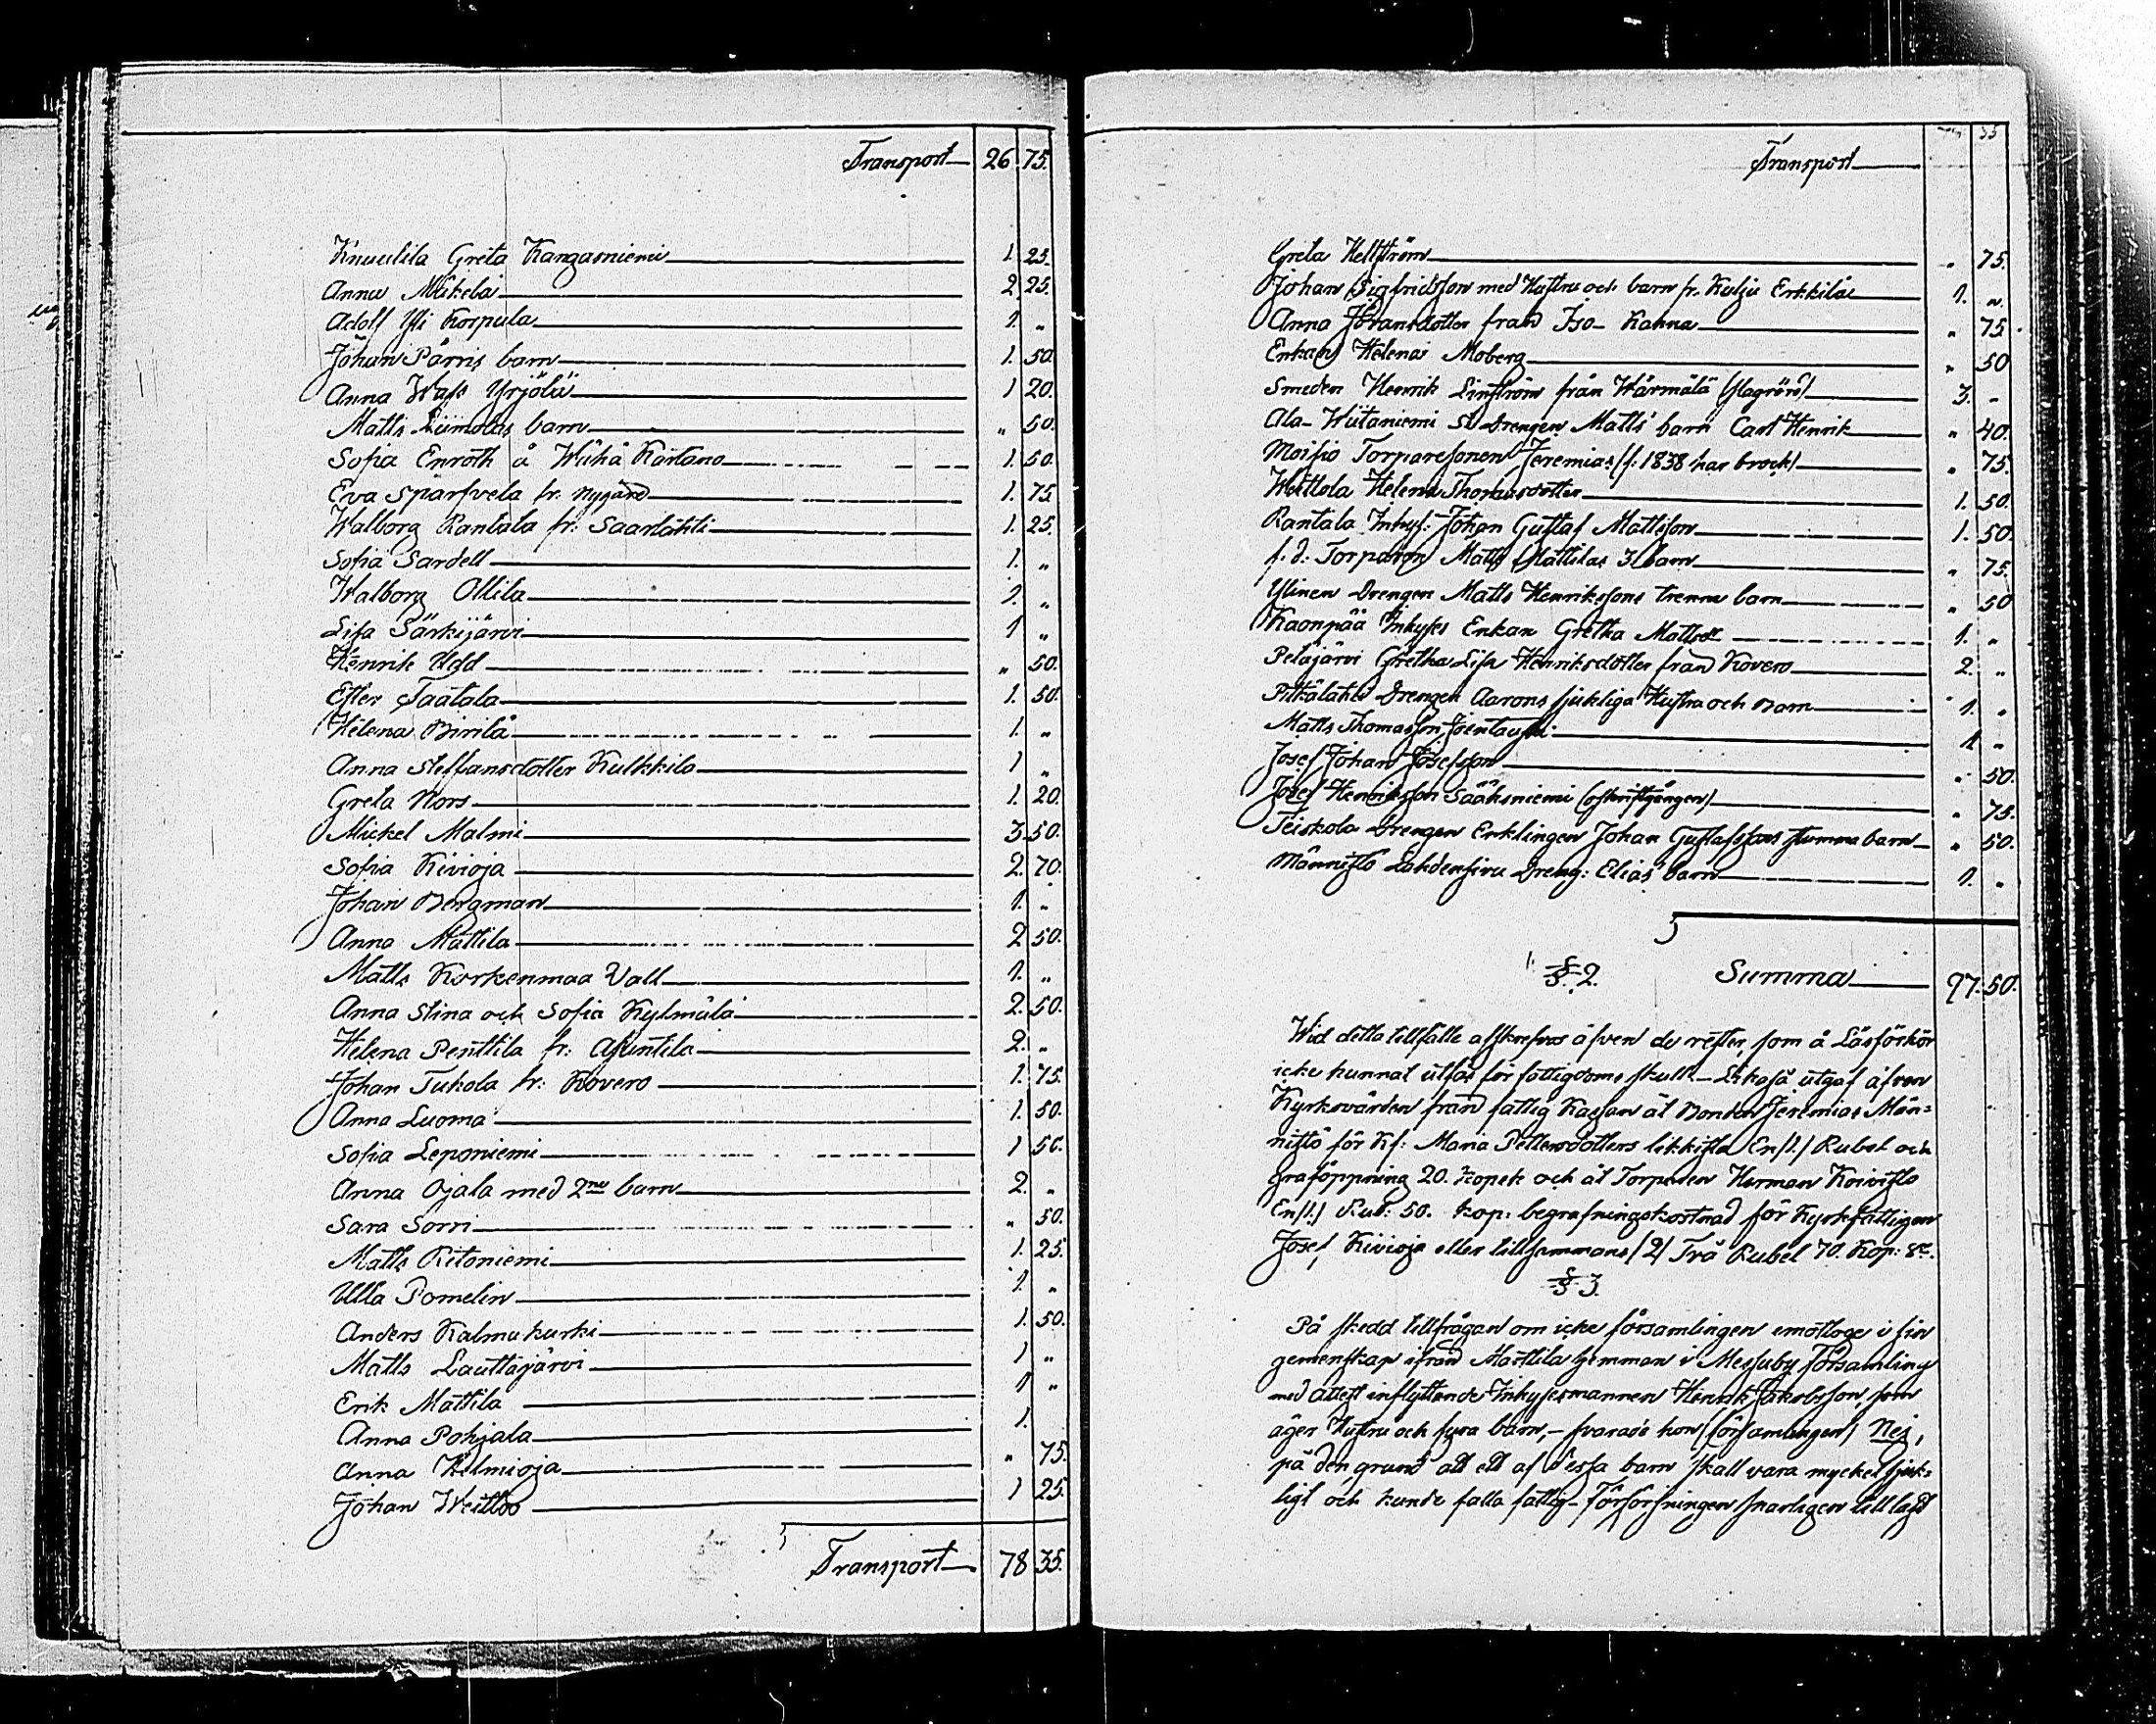 Transport 26 75.
Knuulila Greta Kangasniemi 1. 25.
Anna Mäkelä 2 25.
Adolf Yli Korpula 1. "
Johan Pärris barn 1. 50
Anna Wass Yrjölä 1 20.
Matts Liimolas barn " 50.
Sofia Enroth å Wähä Kartano 1. 50.
Eva Sparfvela fr. Nygård 1. 75.
Walborg Rantala fr: Saarlahti 1. 25.
Sofia Sardell 1. "
Walborg Ollila 1. "
Lisa Särkijärvi 1 "
Henrik Udd " 50.
Ester Taatala 1. 50.
Helena Birilä 1. "
Anna Steffansdotter Kulkkila 1 "
Greta Nors 1. 20.
Mickel Malmi 3. 50.
Sofia Kivioja 2. 70.
Johan Bergman 1. "
Anna Mattila 2 50.
Matts Korkenmaa Vall 1. "
Anna Stina och Sofia Kylmälä 2. 50.
Helena Penttila fr: Asuntila 2. "
Johan Tuhola fr: Kovero 1. 75.
Anna Luoma 1. 50.
Sofia Leponiemi 1 50.
Anna Ojala med 2ne barn 2. "
Sara Sorri " 50.
Matts Ritoniemi 1. 25.
Ulla Pomelin 1. "
Anders Kalmukurki 1. 50.
Matts Lauttajärvi 1 "
Erik Mattila 1 "
Anna Pohjala 1.
Anna Kelmioja " 75.
Johan Weittoo 1 25.
Transport 78 35.
Transport
Greta Hellström " 75.
Johan Sigfridsson med Hustru och barn fr. Kulju Erkkilä 1. "
Anna Göransdotter från Iso-Kanna " 75.
Enkan Helena Moberg " 50
Smeden Henrik Linström från Wärmälä (slagrörd) 3. "
Ala-Wiitaniemi Drengen Matts' barn Carl Henrik " 40.
Moisio Torparesonen Jeremias (f: 1838 har brock) " 75.
Weittola Helena Thomasdotter 1. 50.
Rantala Inhys: Johan Gustaf Mattsson 1. 50.
f.d: Torparen Matts Mattilas 3 barn " 75.
Ylinen Drengen Matts Henrikssons trenne barn " 50
Kaonpää Inhyses Enkan Gretha Mattsd: 1. "
Peläjärvi Gretha Lisa Henriksdotter från Kovero 2. "
Pitkälahti Drengen Aarons sjukliga Hustru och Barn 1. "
Matts Thomasson 1 "
Josef Johan Josefsson " 50.
Josef Henriksson Sääksniemi (oskriftgången) " 75.
Teiskola Drengen Enklingen Johan Gustafssons stumma barn " 50.
Männistö Lahdensivu Dreng: Elias' barn 1. "
§. 2. Summa 97. 50.
Wid detta tillfälle afskrefvos äfven de rester, som å Läsförhör
icke kunnat utfås för fattigdoms skull – Likaså utgaf äfven
Kyrkovärden från fattig Kassan åt Bonden Jeremias Män=
nistö för Kf: Maria Pettersdotters likkista En (1.) Rubel och
graföppning 20. kopek och åt Torparen Herman Koivisto
En (1.) Rub: 50. kop: begrafningskostnad för Kyrkfattigen
Josef Kivioja eller tillsammans (2) Två Rubel 70. Kop: Sr.
§ 3.
På skedd tillfrågan om icke församlingen emottoge i sin
gemenskap ifrån Marttila hemman i Messuby församling
med attest inflyttande Inhysesmannen Henrik Jakobsson, som
äger Hustru och fyra barn, – svarade hon (församlingen) Nej,
på den grund att ett af dessa barn skall vara mycket sjuk=
ligt och kunde falla fattig-Försörjningen snarligen till last